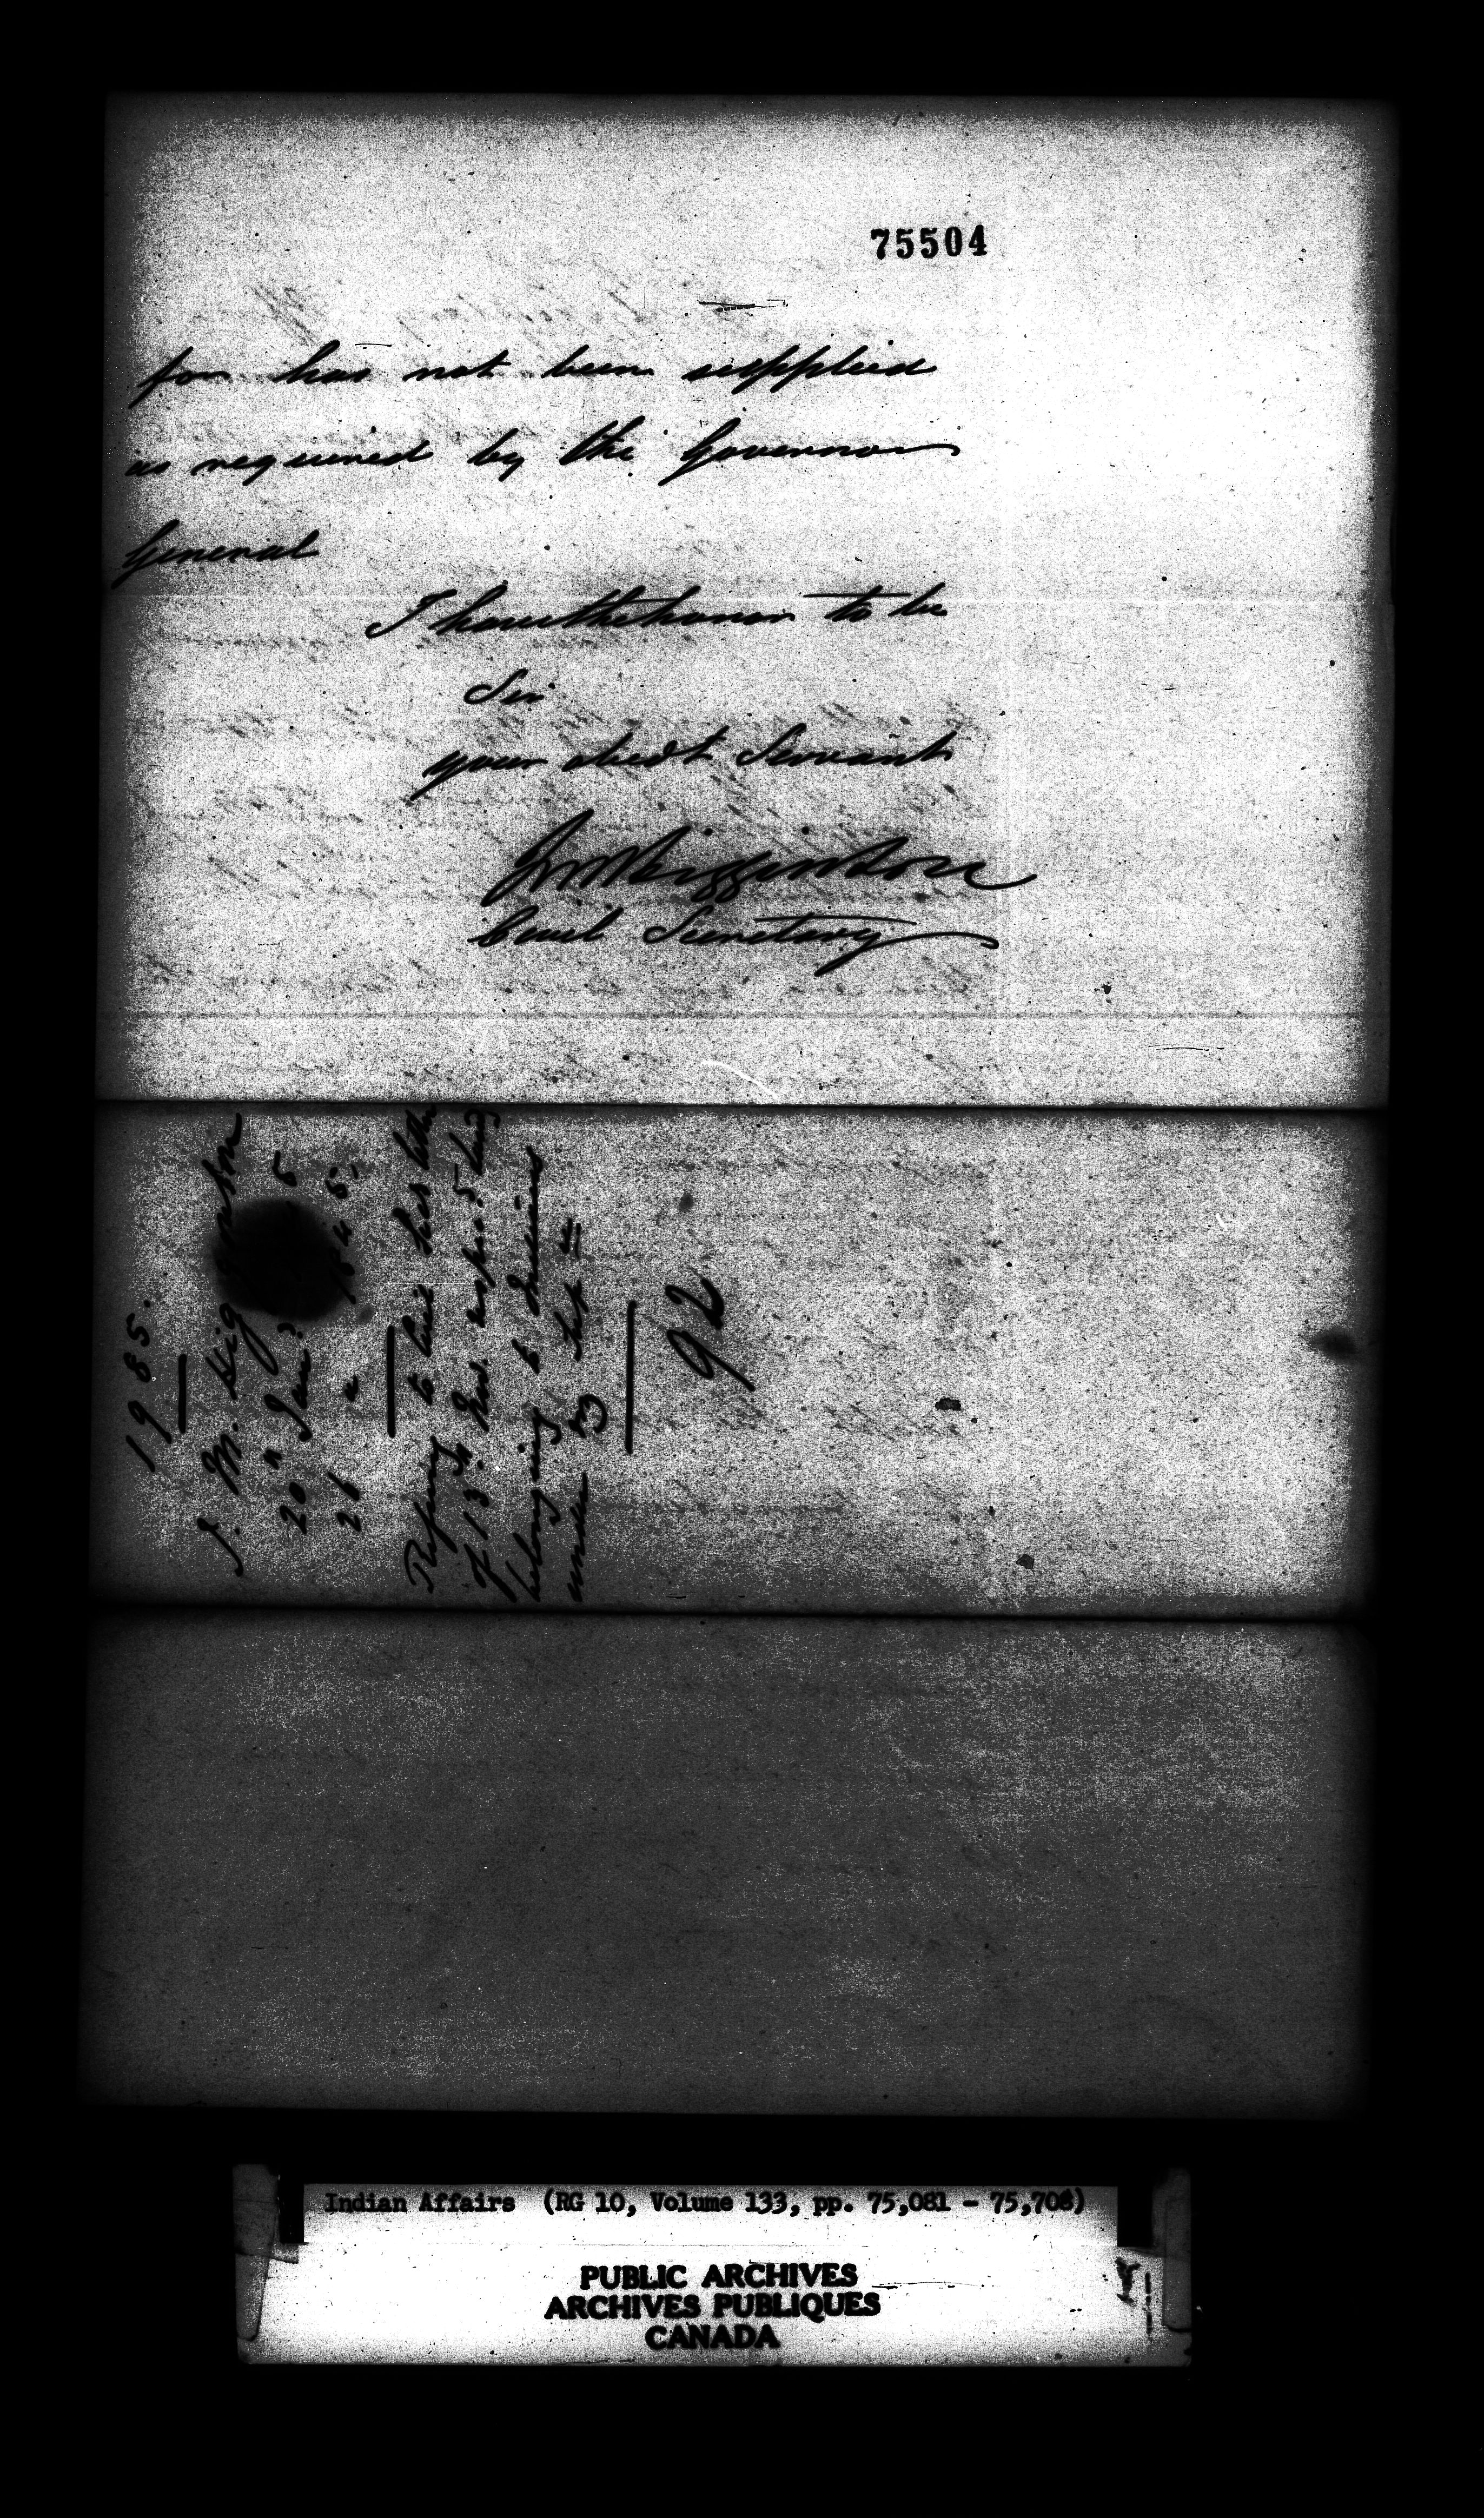 75504
for has not been supplied
as required by the Governor
General
I have the honor to be
Sir
your obedt Servant
J M Higginson
Civil Secretary
1985.
J. M. Higginson
20 " Jany 5
26 " 1845.
Refering to his letter
of 13th
belonging to
under
92
Indian Affairs (RG 10, Volume 133, pp. 75,081 - 75,708)
PUBLIC ARCHIVES
ARCHIVES PUBLIQUES
CANADA